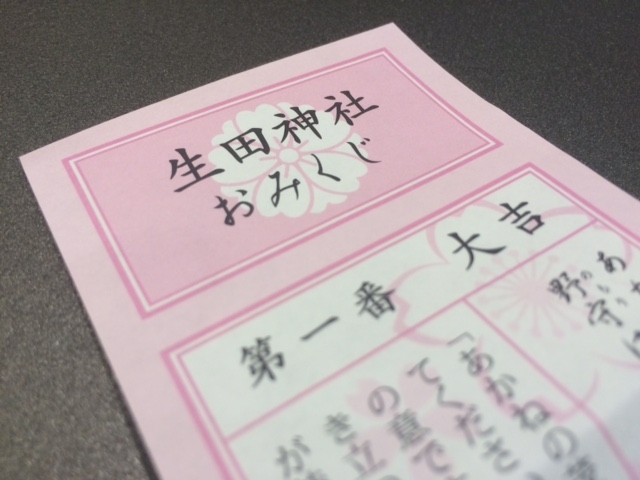 生田神社
おみくじ
第一番 大吉
あ
野守
のもり
「あかねの
てくださ
の意で
き立
が